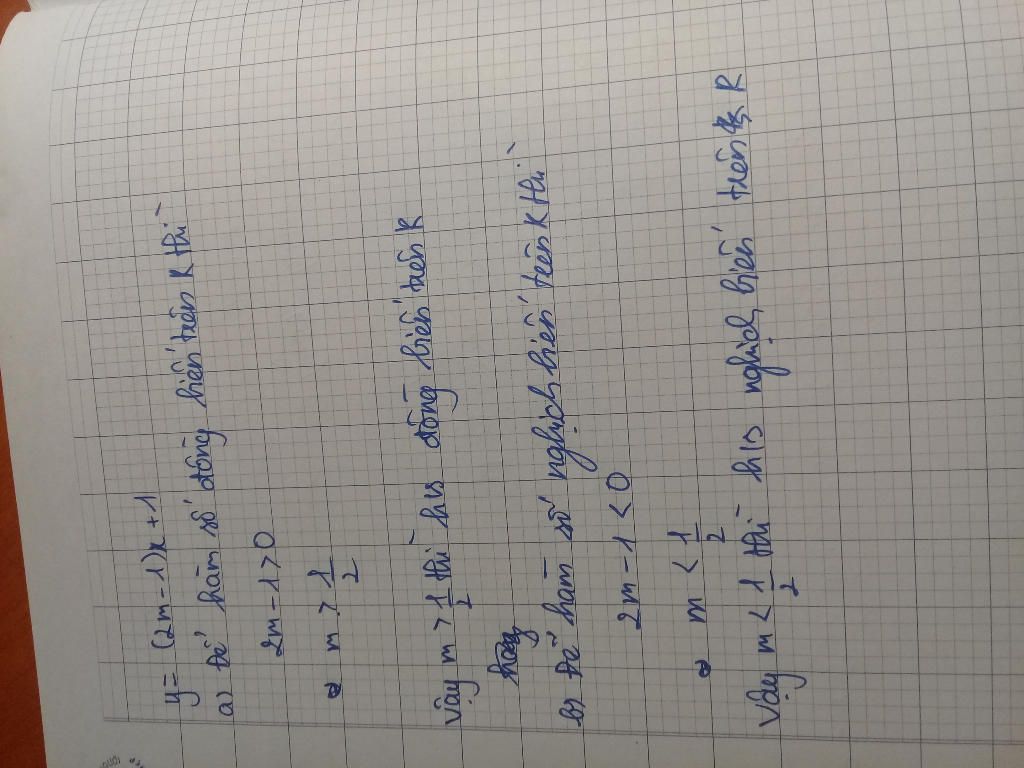 y = (2m - 1)x + 1
a) Để hàm số đồng biến trên R thì
2m - 1 > 0
m > 1/2
Vậy m > 1/2 thì h/s đồng biến trên R
b) Để hàm số nghịch biến trên R thì:
2m - 1 < 0
m < 1/2
Vậy m < 1/2 thì h/s nghịch biến trên R